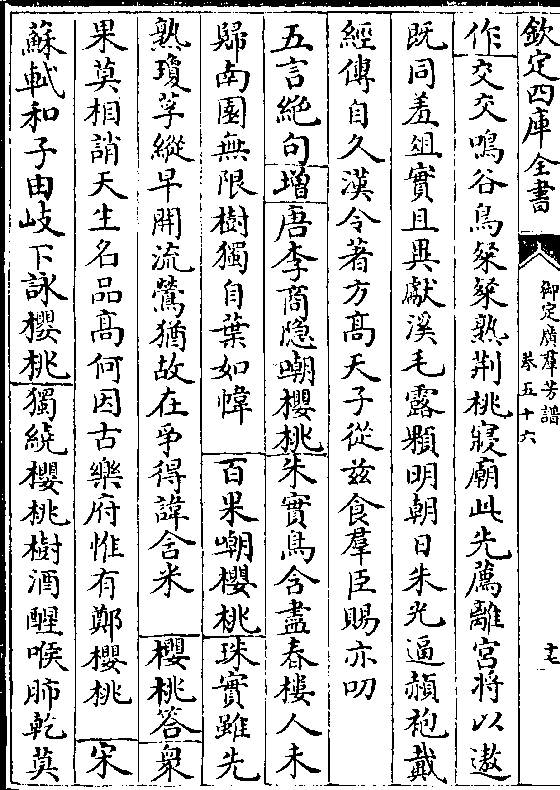 欽定四庫全書
御定廣羣芳譜
卷五十六
十三
作交交鳴谷鳥粲粲熟荆桃寢廟此先薦離宮將以遨
既同羞爼實且異獻溪毛露顆明朝日朱光逼赬袍戴
經傳自久漢令著方髙天子從兹食羣臣賜亦叨
五言絶句增唐李商隐嘲櫻桃朱實鳥含盡春樓人未
歸南園無限樹獨自葉如幃 百果嘲櫻桃珠實雖先
熟瓊莩縱早開流鶯猶故在爭得諱含来 櫻桃答衆
果莫相誚天生名品髙何因古樂府惟有鄭櫻桃 宋
蘇軾和子由岐下詠櫻桃獨繞櫻桃樹酒醒喉肺乾莫